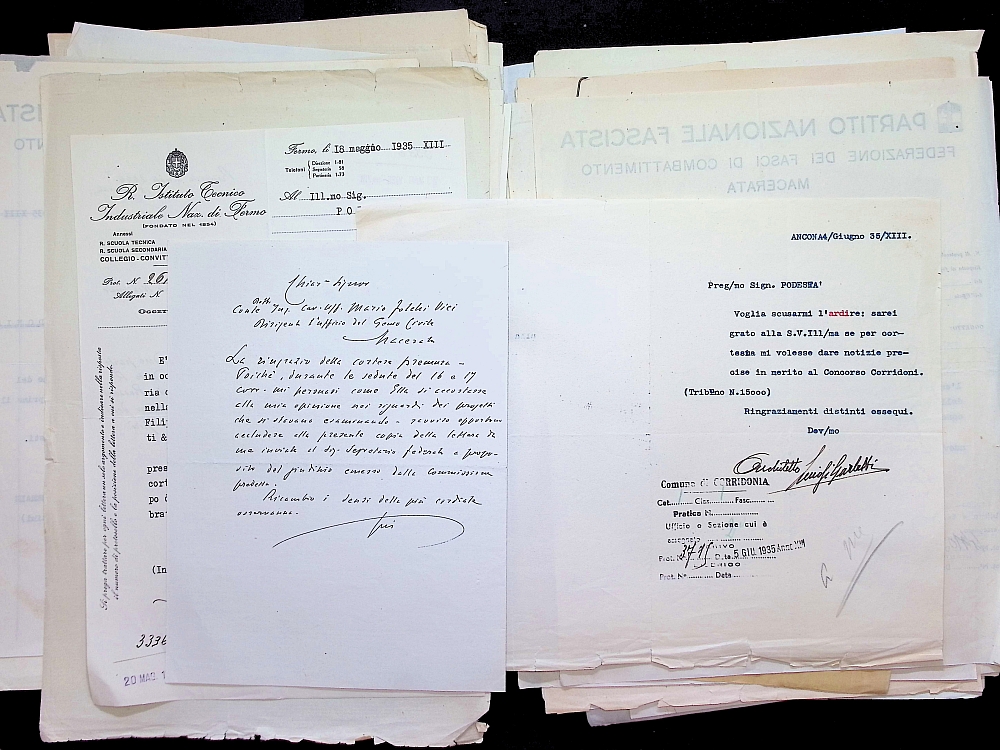 PARTITO NAZIONALE FASCISTA
FEDERAZIONE DEI FASCI DI COMBATTIMENTO
MACERATA
R. Istituto Tecnico
Industriale Naz. di Fermo
(FONDATO NEL 1854)
Annessi
R. SCUOLA TECNICA
R. SCUOLA SECONDARIA
COLLEGIO-CONVITT
Prot. N.
Allegati N
OGGET
Fermo, li 18 maggio 1935 XIII
Telefoni
Direzione 1-81
Segreteria 58
Portineria 1-73
Al Ill.mo Sig.
P O
E'
in oc
ria c
nella
Filip
ti &
pres
cort
po
bra
(In
3336
20 MAG. 1
Si prega trattare per ogni lettera un solo argomento e indicare nella risposta
il numero di protocollo e la posizione della lettera a cui si risponde.
Chiar. Signor
Dott.
Conte Ing. Cav. Uff. Mario Folchi Vici
Dirigente l'ufficio del Genio Civile
Macerata
La ringrazio della cortese premura -
Poiché, durante le sedute del 16 e 17
corr. mi persuasi come Ella si accostasse
alla mia opinione nei riguardi dei progetti
che si stavano esaminando - ravviso opportuno
accludere alla presente copia della lettera da
me inviata al sig. Segretario federale a propo-
sito del giudizio emesso dalla Commissione
predetta.
Ricambio i sensi della più cordiale
osservanza.
ANCONA4/Giugno 35/XIII.
Preg/mo Sign. PODESTA'
Voglia scusarmi l'ardire; sarei
grato alla S.V.Ill/ma se per cor-
tesia mi volesse dare notizie pre-
cise in merito al Concorso Corridoni.
(Trib#no N.15000)
Ringraziamenti distinti ossequi.
Dev/mo
Architetto Luigi Garletti
Comune di CORRIDONIA
Cat. Clas. Fasc.
Pratica N.
Ufficio o Sezione cui è
assegnato
Prot. N° 3715 Data 5 GIU. 1935 Anno XIII
Prot. N° Data